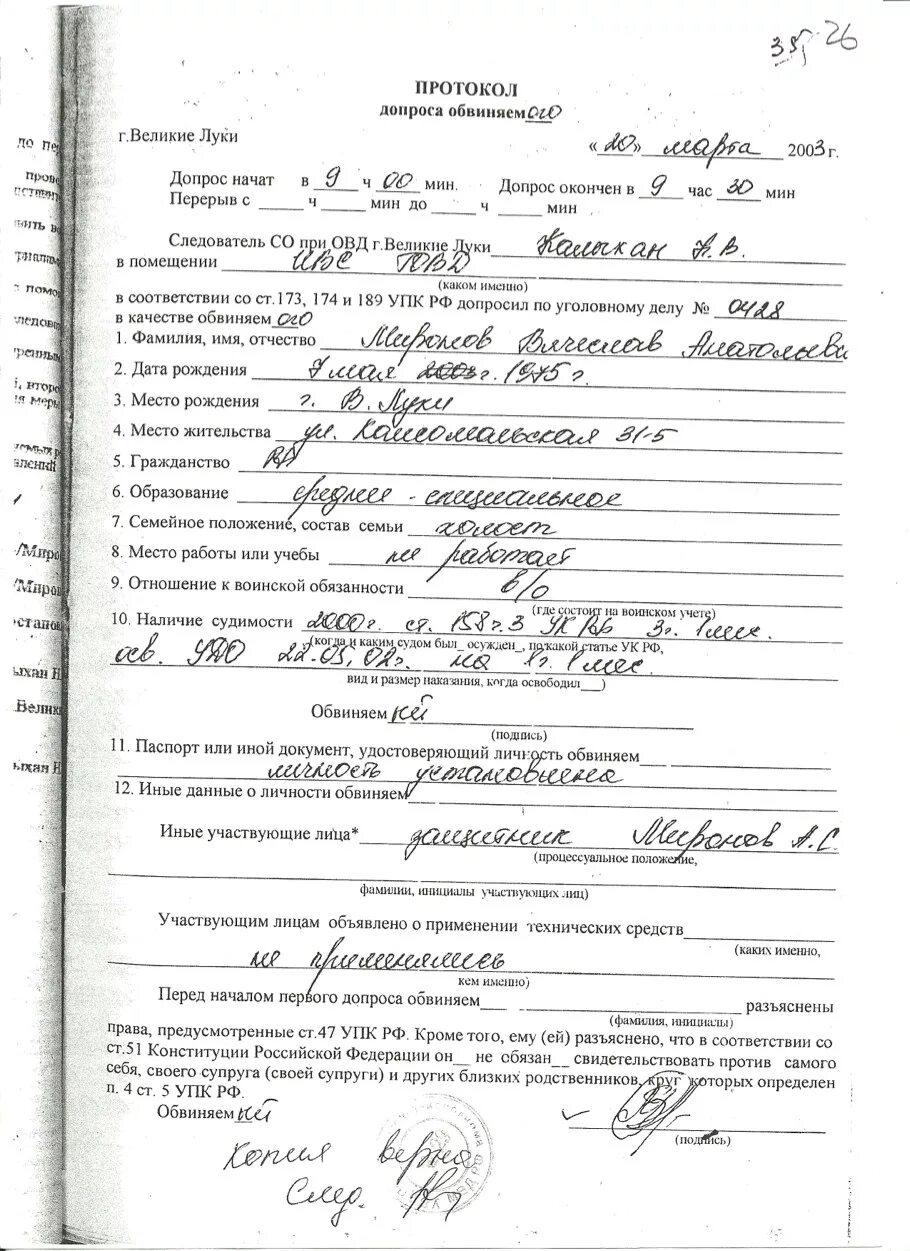 35 26
ПРОТОКОЛ
допроса обвиняемого
г.Великие Луки «20» марта 2003 г.
Допрос начат в 9 ч 00 мин. Допрос окончен в 9 час 30 мин
Перерыв с ______ ч _____ мин до _____ ч _____ мин
Следователь СО при ОВД г.Великие Луки Калыхан Н.В.
в помещении ИВС ГОВД
(каком именно)
в соответствии со ст.173, 174 и 189 УПК РФ допросил по уголовному делу № 0428
в качестве обвиняемого
1. Фамилия, имя, отчество Миронов Вячеслав Анатольеви
2. Дата рождения 7 мая 2003 г. 1975 г.
3. Место рождения г. В. Луки
4. Место жительства ул. Комсомольская 31-5
5. Гражданство РФ
6. Образование средне - специальное
7. Семейное положение, состав семьи холост
8. Место работы или учебы не работает
9. Отношение к воинской обязанности в/о
(где состоит на воинском учете)
10. Наличие судимости 2000 г. ст. 158 г. 3 УК РФ 3 г. 1 мес.
(когда и каким судом был_ осужден_, по какой статье УК РФ,
осв. УДО 22.03.02г. на 1 г. 1 мес.
вид и размер наказания, когда освободил___)
Обвиняемый
(подпись)
11. Паспорт или иной документ, удостоверяющий личность обвиняем
личность установлена
12. Иные данные о личности обвиняем
Иные участвующие лица* защитник Миронов А.С.
(процессуальное положение,
фамилии, инициалы участвующих лиц)
Участвующим лицам объявлено о применении технических средств
(каких именно,
не применялись
кем именно)
Перед началом первого допроса обвиняем разъяснены
(фамилия, инициалы)
права, предусмотренные ст.47 УПК РФ. Кроме того, ему (ей) разъяснено, что в соответствии со
ст.51 Конституции Российской Федерации он__ не обязан__ свидетельствовать против самого
себя, своего супруга (своей супруги) и других близких родственников, круг которых определен
п. 4 ст. 5 УПК РФ.
Обвиняемый
(подпись)
Копия верна
След.